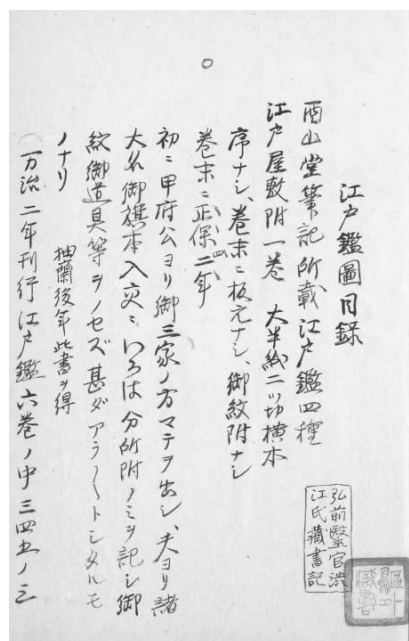 江戸鑑圖目錄
酉山堂筆記所載江戸鑑四種
江戸屋敷附一巻 大半紙二ッ切横本
序ナシ、巻末ニ板元ナシ、御紋附ナシ
巻末ニ正保二年
初ニ甲府公ヨリ御三家ノ方マテヲ出シ、夫ヨリ諸
大名御旗本入交ニいろは分所附ノミヲ記シ御
紋御道具等ヲノセズ甚ダアラ〱トシタルモ
ノナリ 抽蘭後年此書ヲ得
万治二年刊行江戸鑑六巻ノ中三四五ノ三
弘前毉官澁
江氏藏書記